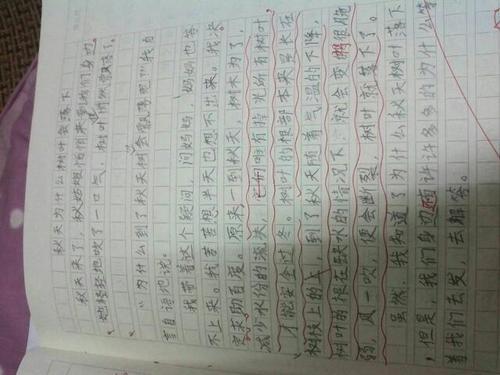 秋天为什么树叶会落下
秋天来了，秋姑娘悄悄来到我们身边，
她轻轻地吹了一口气，树叶悄然飘落了。
“为什么到了秋天树会飘落呢？”我自
言自语地说。
我带着这个疑问，问妈妈，妈妈也答
不上来。我苦苦想半天也想不出来。我决
定求助百度。原来一到秋天，树木为了
减少水份的流失，它们唯有抖光所有树叶，
才能安全过冬。树叶的根部本来生长在
树枝上的，到了秋天随着气温的下降，
树叶的根在缺水的情况下，就会变的很脆
弱，风一吹，便会断裂，树叶就落下了。
虽然，我知道了为什么秋天树叶落下
，但是，我们身边有许许多多的为什么等
着我们去发，去解答。